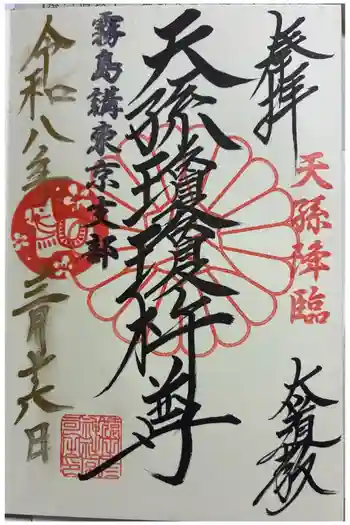 奉拝
天孫降臨
大道教
天孫瓊瓊杵尊
霧島講東京支部
令和八年
三月日